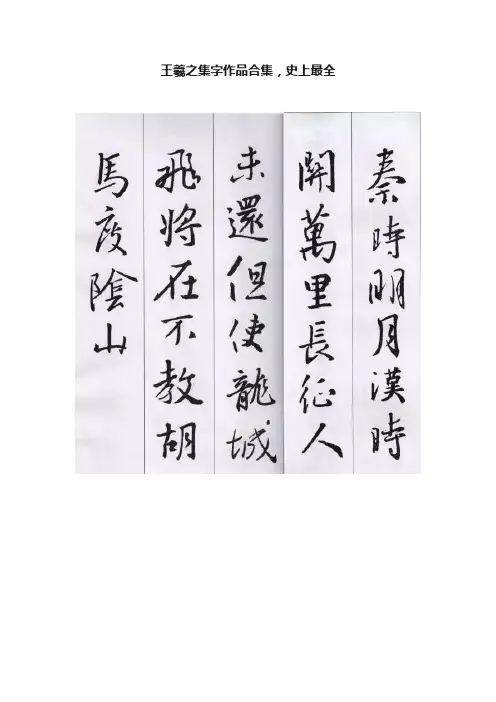 王羲之集字作品合集，史上最全
秦時明月漢時
關萬里長征人
未還但使龍城
飛將在不教胡
馬度陰山